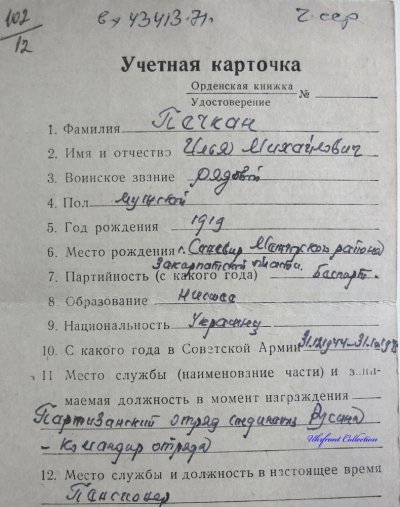 102
12
вх 43413-71г.
Учетная карточка
Орденская книжка
Удостоверение №
1. Фамилия Печкан
2. Имя и отчество Илья Михайлович
3. Воинское звание рядовой
4. Пол мужской
5. Год рождения 1919
6. Место рождения с. Синевир района
Закарпатской области.
7. Партийность (с какого года) беспарт.
8 Образование низшее
9. Национальность Украинец
10. С какого года в Советской Армии
11 Место службы (наименование части) и зани-
маемая должность в момент награждения
Партизанский отряд
- Командир отряда
12. Место службы и должность в настоящее время
Пенсионер
Ukrfront Collection